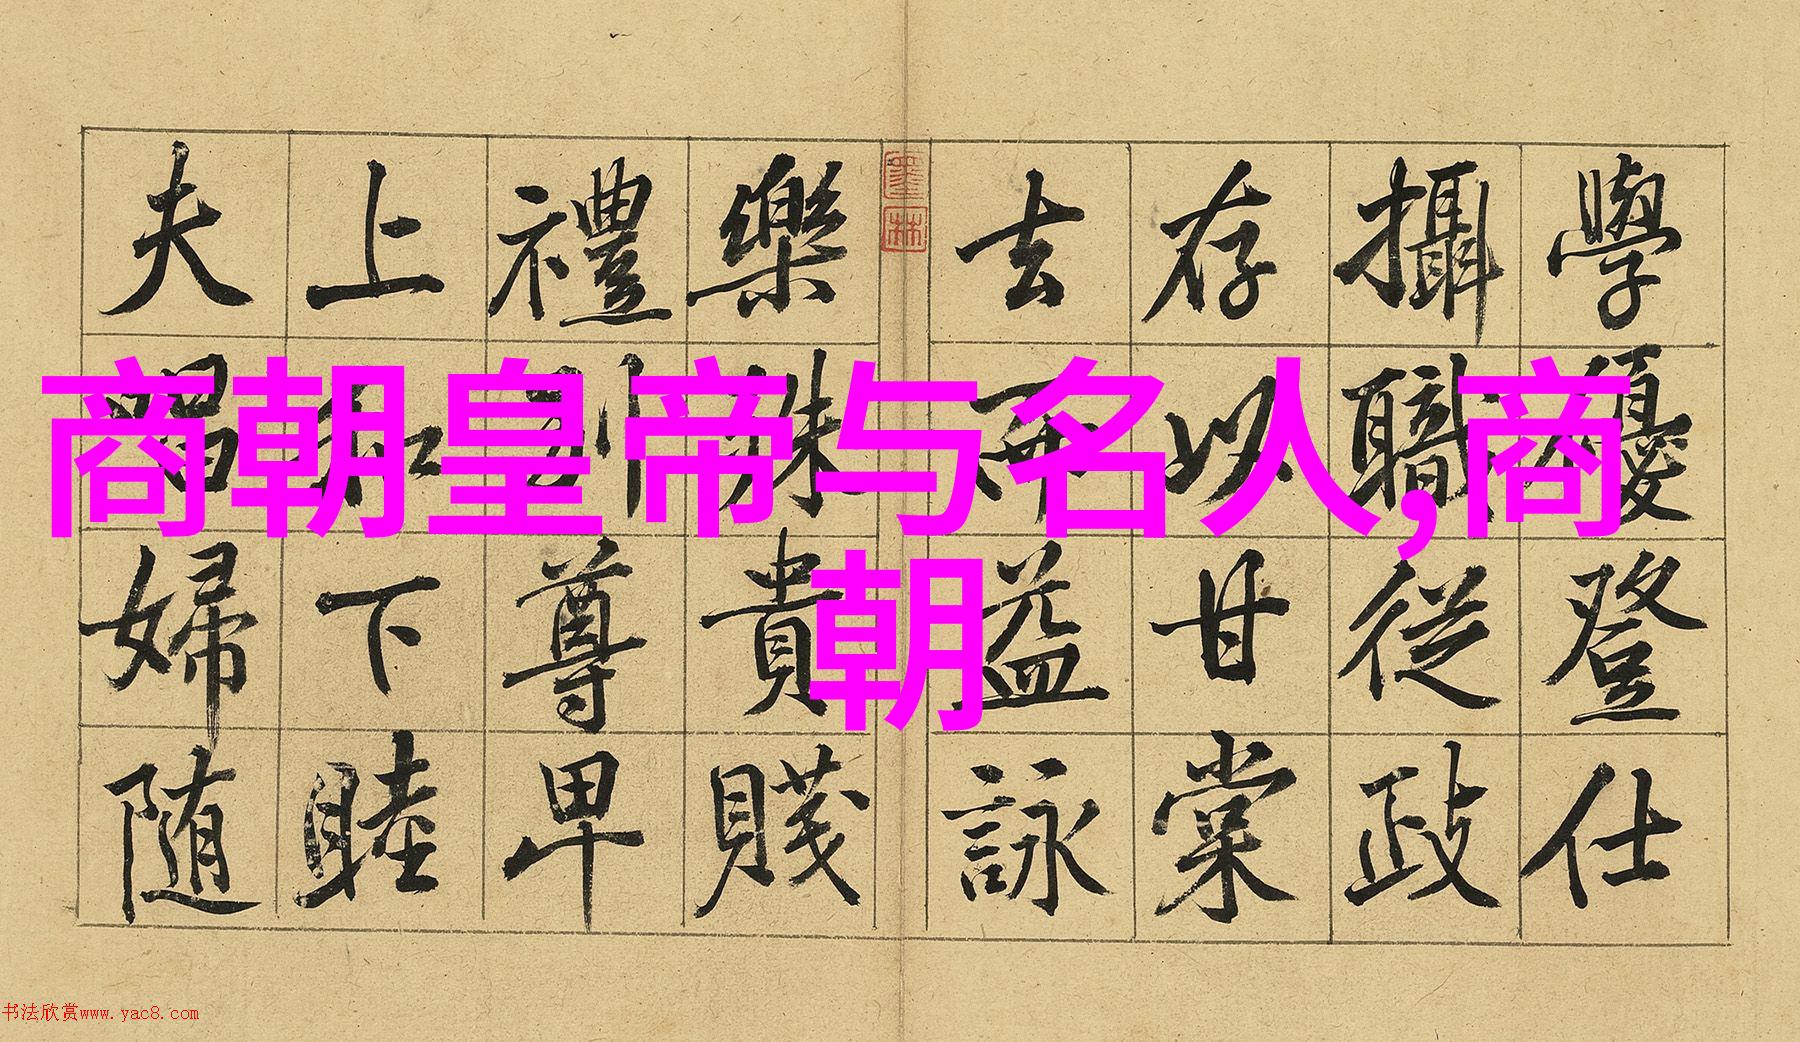 商朝皇帝与名人,商
朝
學優登仕
攝職從政
存以甘棠
去而益詠
樂殊貴賤
禮別尊卑
上和下睦
夫唱婦随
墨林
书法欣赏www.yac8.com